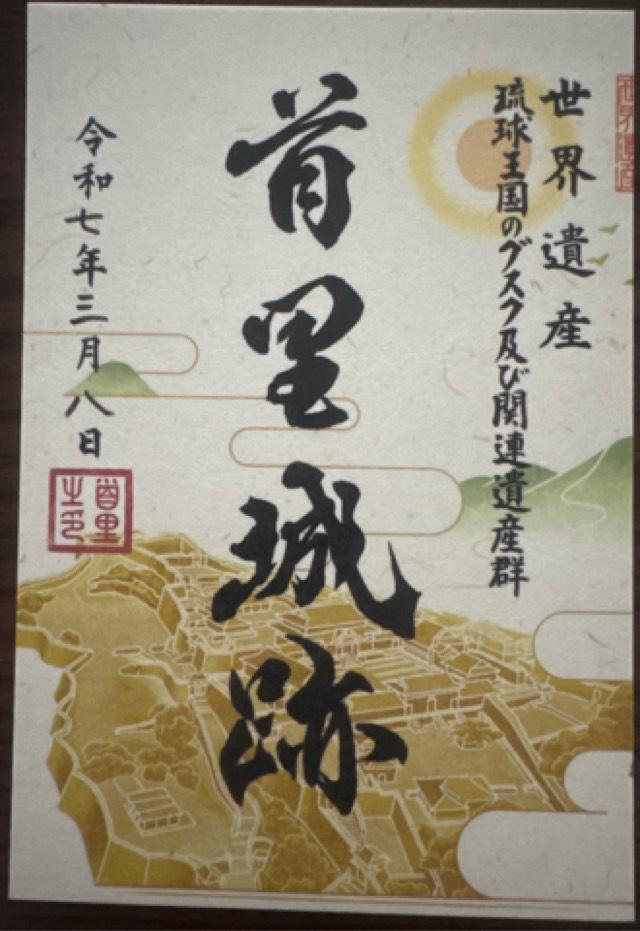 世界遺産
世界遺産
琉球王国のグスク及び関連遺産群
首里城跡
令和七年三月八日
首里
之印